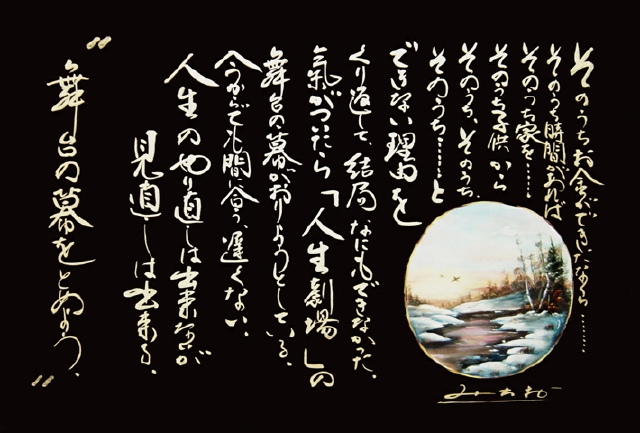 そのうちお金ができたなら………
そのうち時間があれば
そのうち家を……
そのうち子供から
そのうち、そのうち、
そのうち……と
できない理由を
くり返して、結局なにもできなかった、
氣がついたら「人生劇場」の
舞台の幕がおりようとしている、
今からでも間合う、遅くない、
人生のやり直しは出来ないが
見直しは出来る、
“舞台の幕をとめよう、”